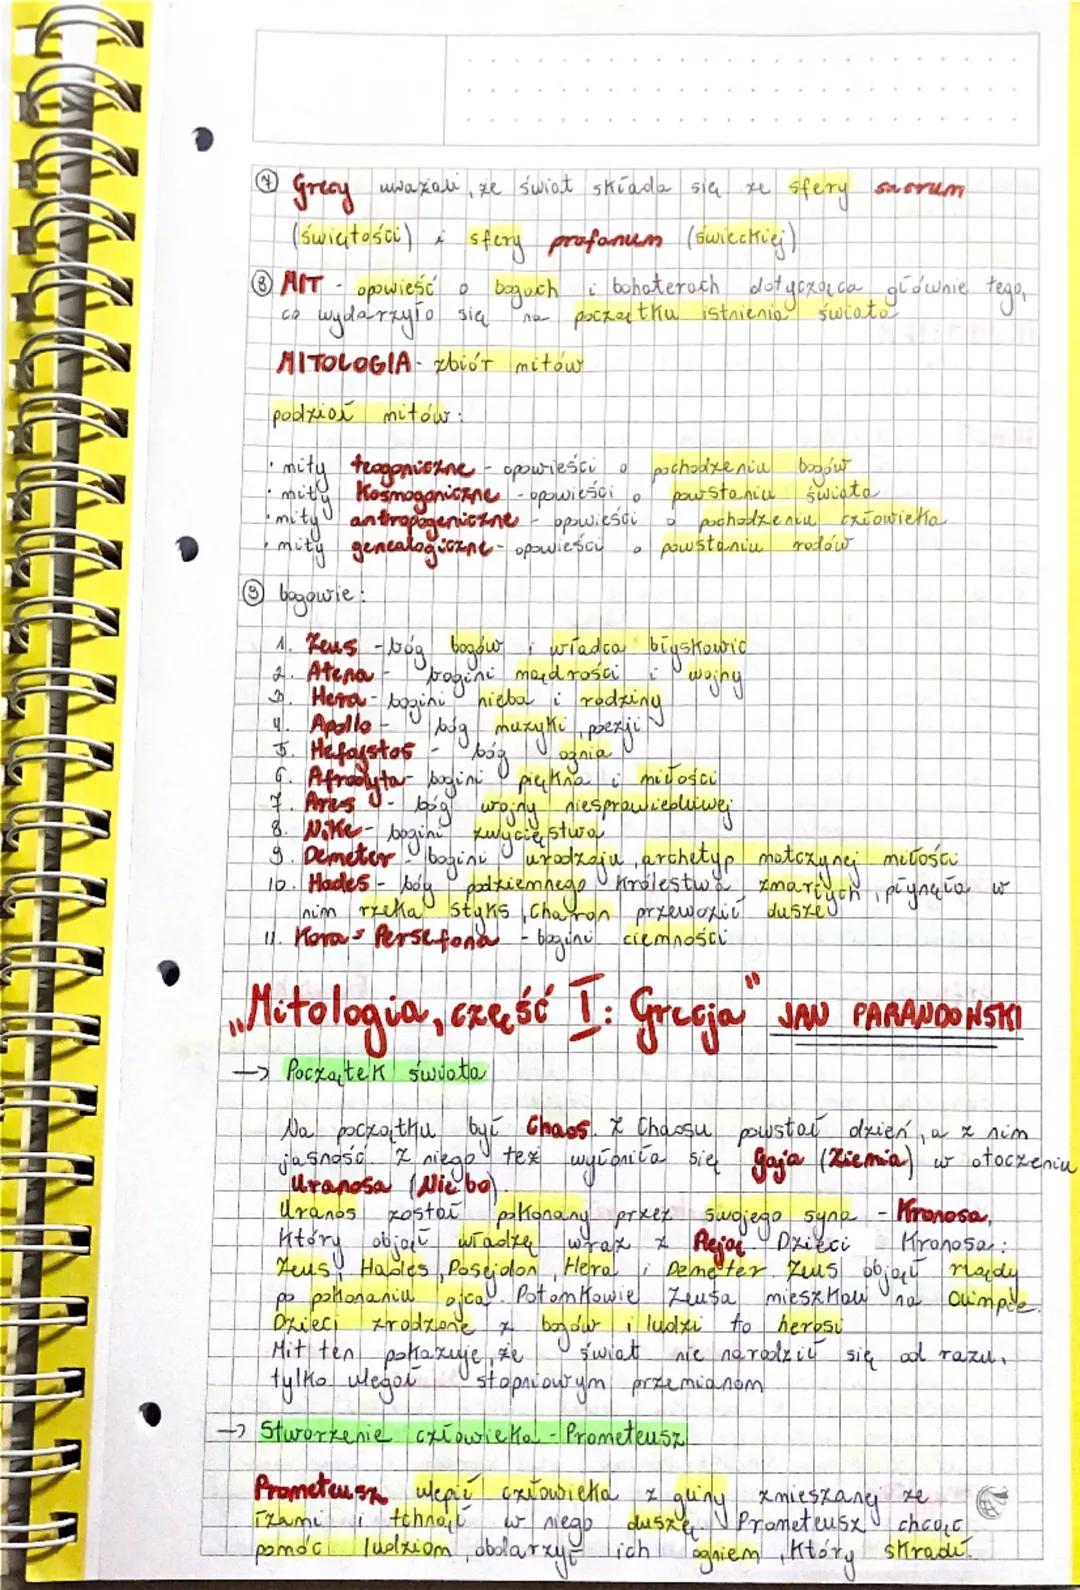 ⑦ Grecy uważali, że świat składa się ze sfery sacrum
(świętości) i sfery profanum (świeckiej)
⑧ MIT - opowieść o bogach i bohaterach dotycząca głównie tego,
co wydarzyło się na początku istnienia świata
MITOLOGIA - zbiór mitów
podział mitów:
· mity teogoniczne - opowieści o pochodzeniu bogów
· mity kosmogoniczne - opowieści o powstaniu świata
· mity antropogeniczne - opowieści o pochodzeniu człowieka
· mity genealogiczne - opowieści o powstaniu rodów
⑨ bogowie:
1. Zeus - bóg bogów i władca błyskawic
2. Atena - bogini mądrości i wojny
3. Hera - bogini nieba i rodziny
4. Apollo - bóg muzyki, poezji
5. Hefajstos - bóg ognia
6. Afrodyta - bogini piękna i miłości
7. Ares - bóg wojny niesprawiedliwej
8. Nike - bogini zwycięstwa
9. Demeter - bogini urodzaju, archetyp matczynej miłości
10. Hades - bóg podziemnego królestwa zmarłych, płynęła w
nim rzeka Styks, Charon przewoził dusze
11. Kora = Persefona - bogini ciemności
„Mitologia, część I: Grecja" JAN PARANDOWSKI
→ Początek świata
Na początku był Chaos. Z Chaosu powstał dzień, a z nim
jasność. Z niego też wyłoniła się Gaja (Ziemia) w otoczeniu
Uranosa (Niebo).
Uranos został pokonany przez swojego syna - Kronosa,
który objął władzę wraz z Reją. Dzieci Kronosa:
Zeus, Hades, Posejdon, Hera i Demeter. Zeus objął rządy
po pokonaniu ojca. Potomkowie Zeusa mieszkali na Olimpie.
Dzieci zrodzone z bogów i ludzi to herosi
Mit ten pokazuje, że świat nie narodził się od razu,
tylko ulegał stopniowym przemianom
→ Stworzenie człowieka - Prometeusz
Prometeusz ulepił człowieka z gliny zmieszanej ze
łzami i tchnął w niego duszę. Prometeusz chcąc
pomóc ludziom, obdarzył ich ogniem, który skradł.